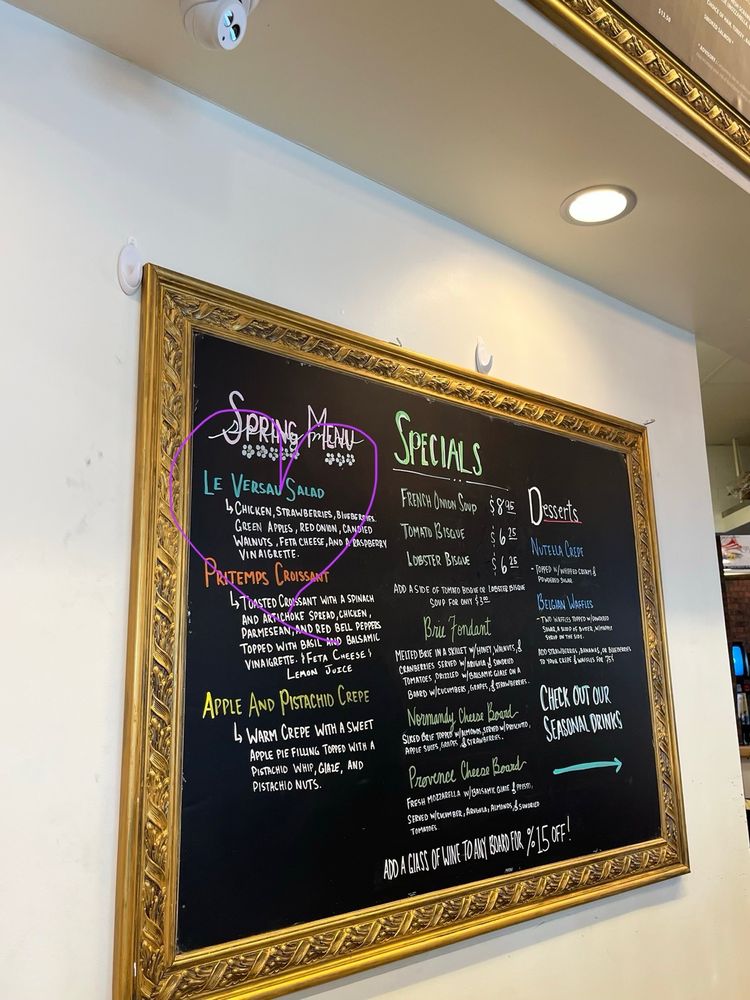 Spring Menu
Le Versau Salad
↳ Chicken, strawberries, blueberries,
green apples, red onion, candied
walnuts, feta cheese, and a raspberry
vinaigrette.
Pritemps Croissant
↳ Toasted croissant with a spinach
and artichoke spread, chicken,
parmesean, and red bell peppers
topped with basil and balsamic
vinaigrette. & feta cheese &
lemon juice
Apple And Pistachio Crepe
↳ Warm crepe with a sweet
apple pie filling topped with a
pistachio whip, glaze, and
pistachio nuts.
Specials
French Onion Soup $8.95
Tomato Bisque $6.25
Lobster Bisque $6.25
Add a side of tomato bisque or lobster bisque
soup for only $3.00
Brie Fondant
Melted brie in a skillet w/honey, walnuts, &
cranberries served w/arugula & sundried
tomatoes, drizzled w/balsamic glaze on a
board w/cucumbers, grapes, & strawberries.
Normandy Cheese Board
Sliced brie topped w/almonds, served w/prosciutto,
apple slices, grapes, & strawberries.
Provence Cheese Board
Fresh mozzarella w/balsamic glaze & pesto,
served w/cucumber, arugula, almonds, & sundried
tomatoes
Desserts
Nutella Crepe
- Topped w/whipped cream &
powdered sugar
Belgian Waffles
- Two waffles topped w/powdered
sugar, a scoop of butter, w/maple
syrup on the side.
Add strawberries, bananas, or blueberries
to your crepe & waffles for 75¢
Check out our
seasonal drinks
Add a glass of wine to any board for %15 off!
$13.50
smoked salmon